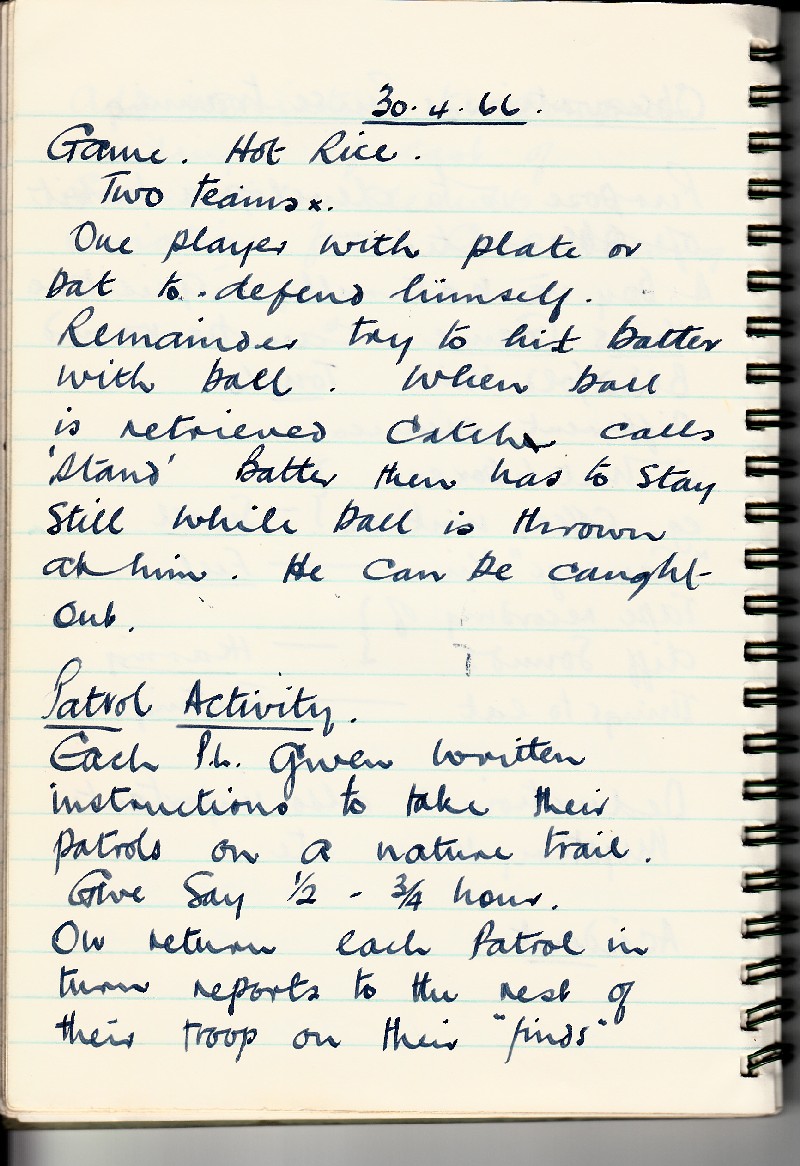 30.4.66.
Game. Hot Rice.
Two teams x.
One player with plate or
bat to defend himself.
Remainder try to hit batter
with ball. When ball
is retrieved catcher calls
'Stand' Batter then has to stay
still while ball is thrown
at him. He can be caught
out.
Patrol Activity.
Each P.L. given written
instructions to take their
patrols on a nature trail.
Give say 1/2 - 3/4 hour.
On return each Patrol in
turn reports to the rest of
their troop on their "finds"